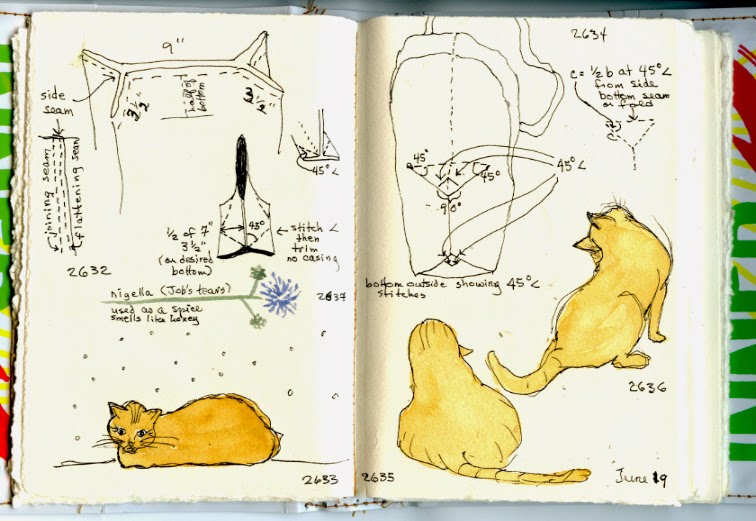 9"
side
seam
3½"
half of
bottom
3½"
joining seam
flattening seam
45° ∠
½ of 7"
3½"
(or desired
bottom)
45°
← stitch ∠
then
trim
no casing
2632
nigella (Job's tears)
used as a spice
smells like honey
2637
2633
2634
c = ½ b at 45° ∠
from side
bottom seam
or fold
c
45°
45°
45° ∠
90°
bottom outside showing 45° ∠
stitches
2636
2635
June 19